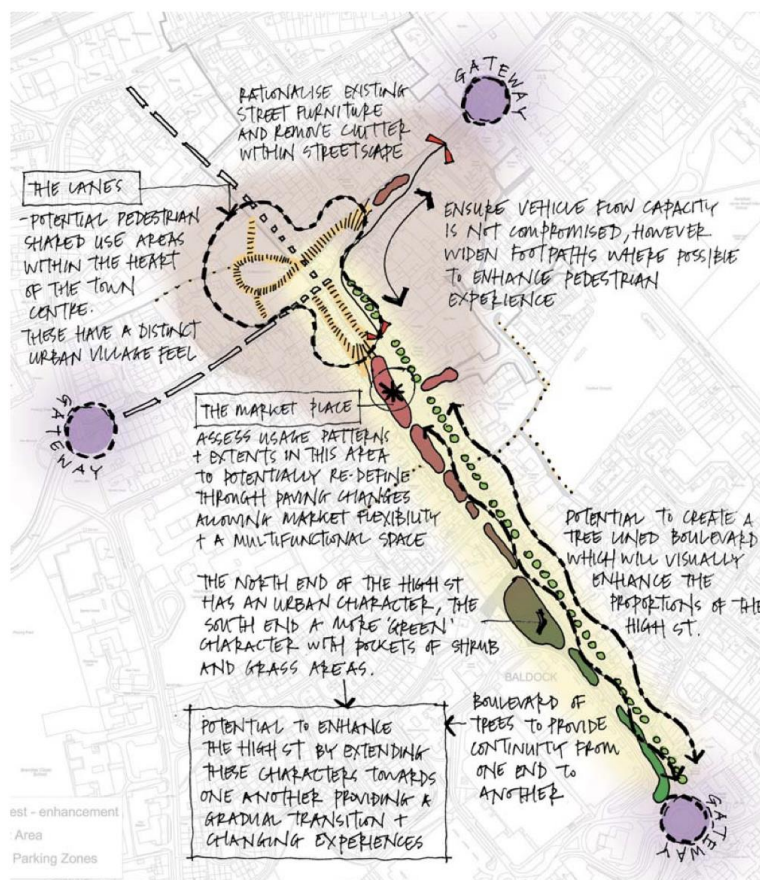 GATEWAY
RATIONALISE EXISTING
STREET FURNITURE
AND REMOVE CLUTTER
WITHIN STREETSCAPE
THE LANES
-POTENTIAL PEDESTRIAN
SHARED USE AREAS
WITHIN THE HEART
OF THE TOWN
CENTRE.
THESE HAVE A DISTINCT
URBAN VILLAGE FEEL
ENSURE VEHICLE FLOW CAPACITY
IS NOT COMPROMISED, HOWEVER
WIDEN FOOTPATHS WHERE POSSIBLE
TO ENHANCE PEDESTRIAN
EXPERIENCE
GATEWAY
THE MARKET PLACE
ASSESS USAGE PATTERNS
+ EXTENTS IN THIS AREA
TO POTENTIALLY RE-DEFINE
THROUGH PAVING CHANGES
ALLOWING MARKET FLEXIBILITY
+ A MULTIFUNCTIONAL SPACE
POTENTIAL TO CREATE A
TREE LINED BOULEVARD
WHICH WILL VISUALLY
ENHANCE THE
PROPORTIONS OF THE
HIGH ST.
THE NORTH END OF THE HIGH ST
HAS AN URBAN CHARACTER, THE
SOUTH END A MORE 'GREEN'
CHARACTER WITH POCKETS OF SHRUB
AND GRASS AREAS.
BALDOCK
BOULEVARD OF
TREES TO PROVIDE
CONTINUITY FROM
ONE END TO
ANOTHER
POTENTIAL TO ENHANCE
THE HIGH ST BY EXTENDING
THESE CHARACTERS TOWARDS
ONE ANOTHER PROVIDING A
GRADUAL TRANSITION +
CHANGING EXPERIENCES
GATEWAY
est - enhancement
Area
Parking Zones